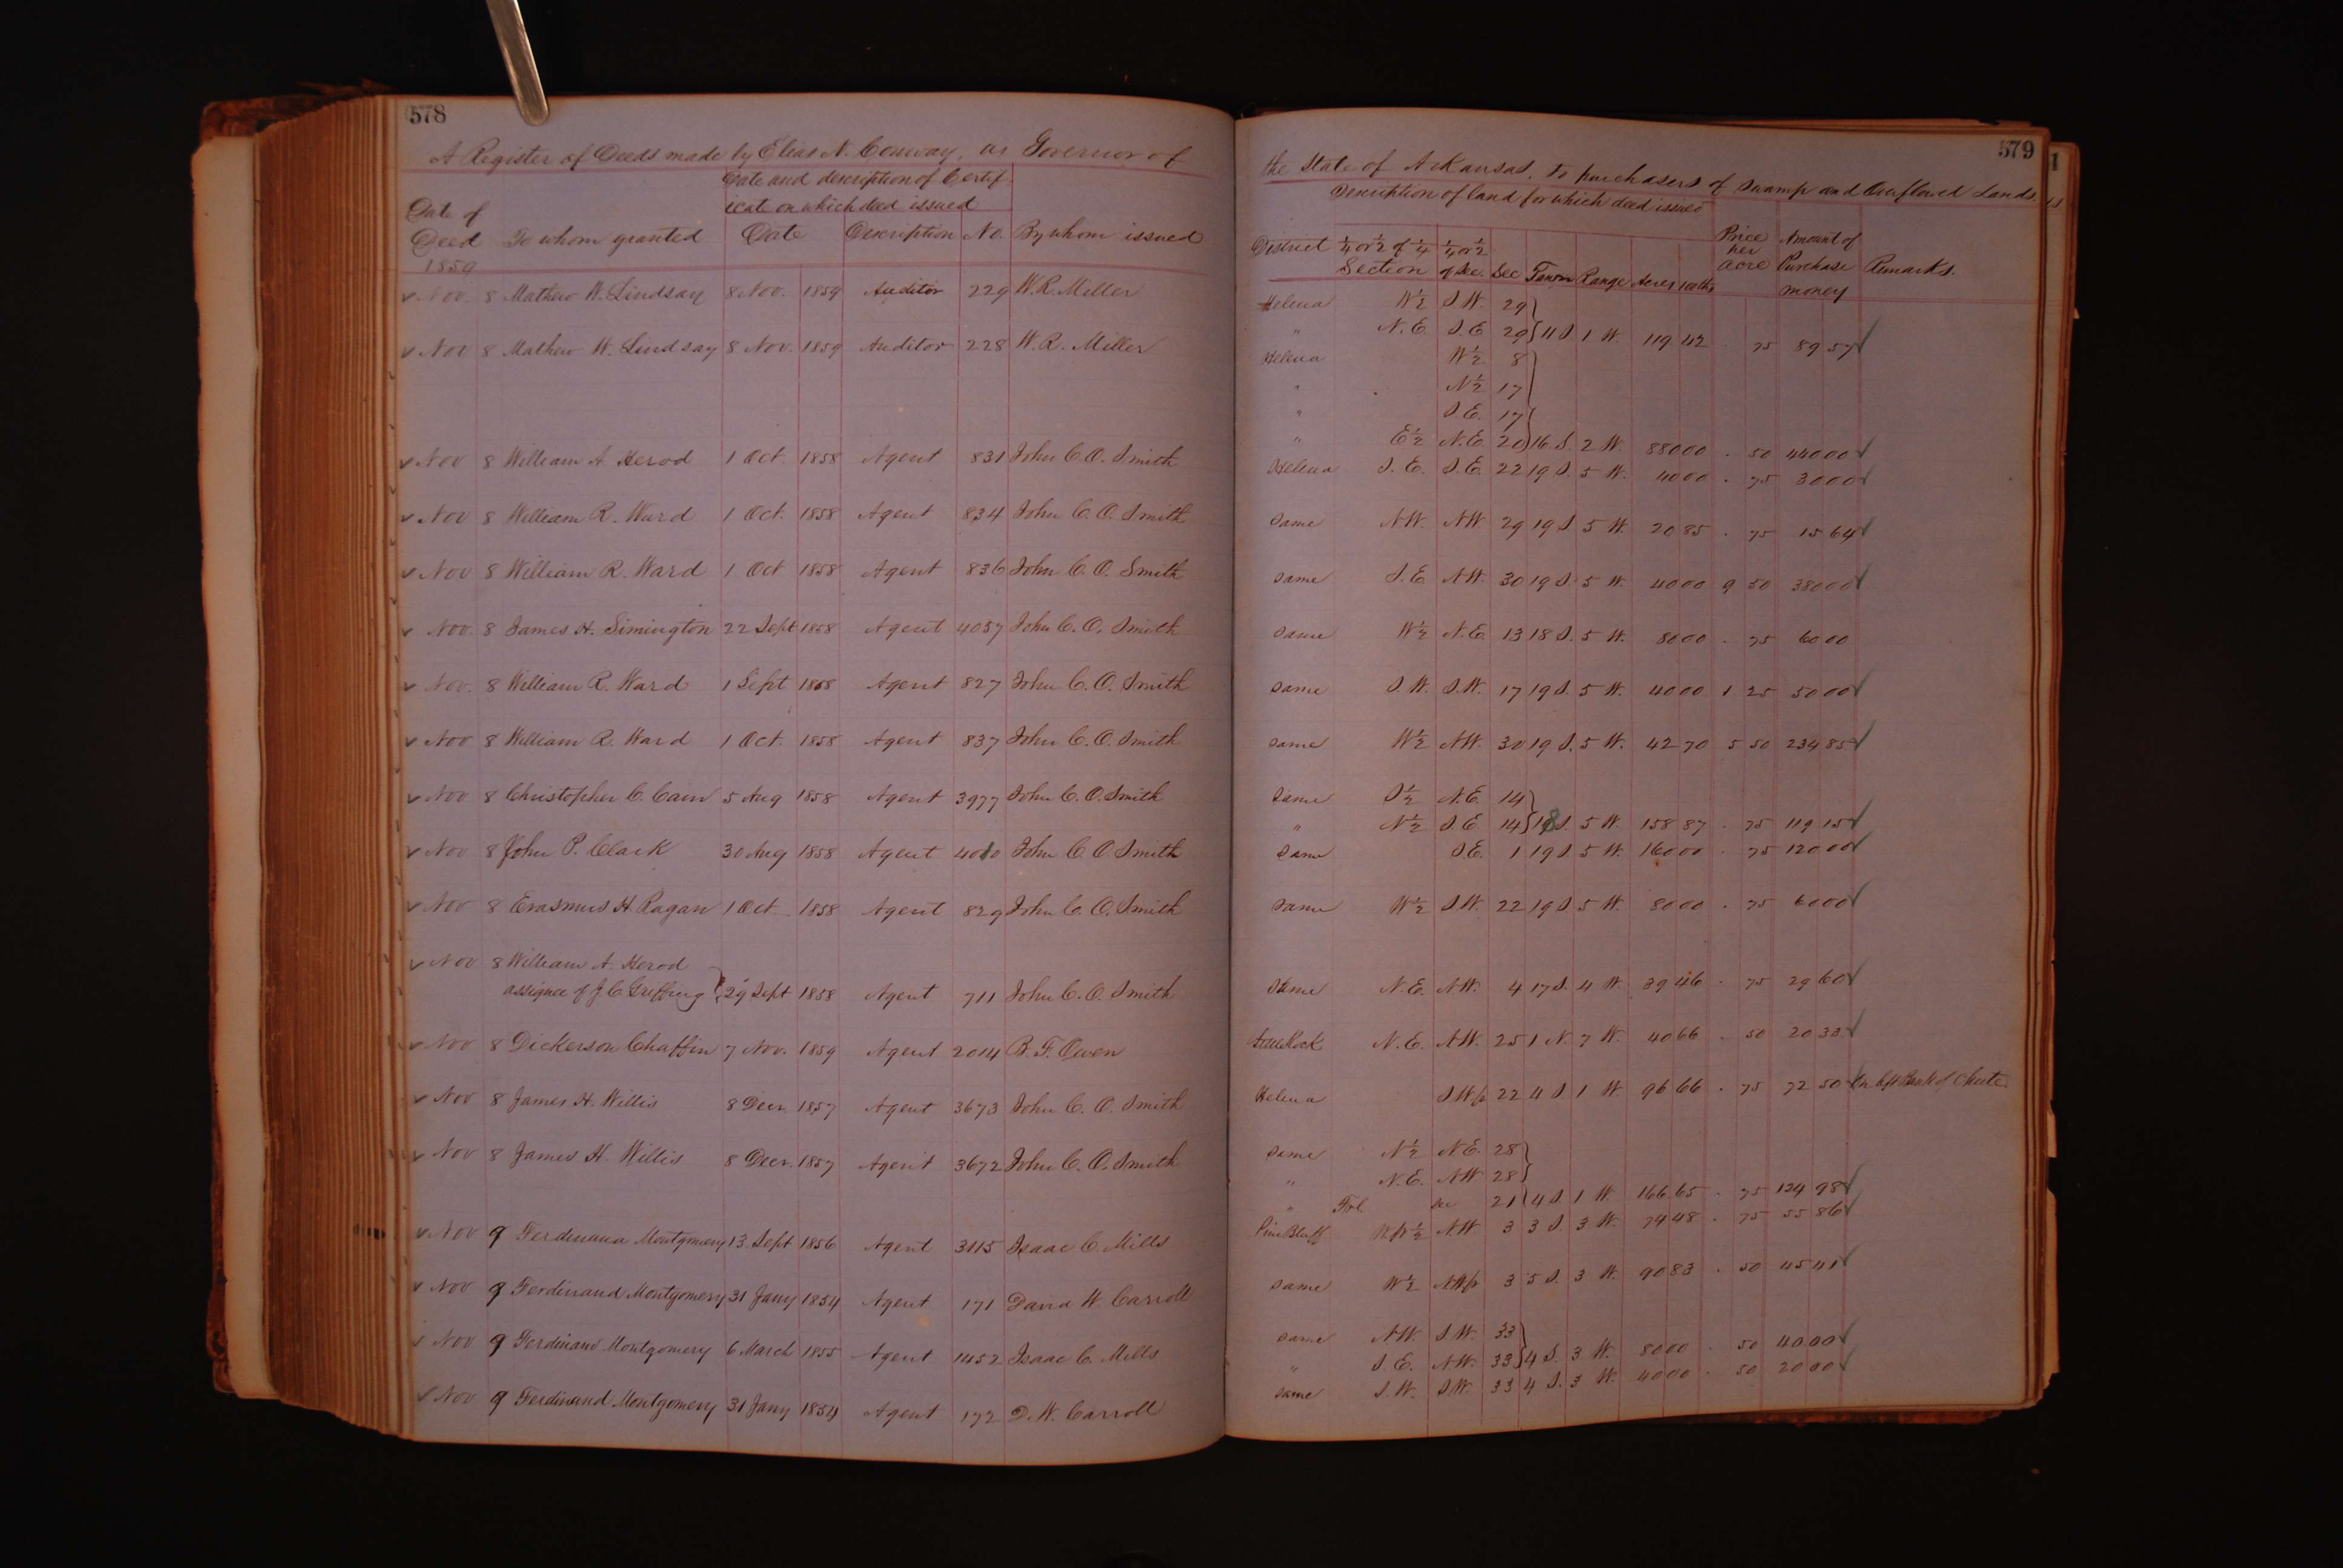 578
A Register of Deeds made by Elias N. Conway, as Governor of
Date and description of Certif-
icate on which deed issued
Date of
Deed To whom granted Date Description No. By whom issued
1859
Nov. 8 Mathew W. Lindsay 8 Nov. 1859 Auditor 229 W. R. Miller
Nov 8 Mathew W. Lindsay 8 Nov. 1859 Auditor 228 W. R. Miller
Nov 8 William A Herod 1 Oct. 1858 Agent 831 John C. O. Smith
Nov 8 William R. Ward 1 Oct. 1858 Agent 834 John C. O. Smith
Nov 8 William R. Ward 1 Oct 1858 Agent 836 John C. O. Smith
Nov. 8 James H. Simington 22 Sept 1858 Agent 4057 John C. O. Smith
Nov. 8 William R. Ward 1 Sept 1858 Agent 827 John C. O. Smith
Nov 8 William R. Ward 1 Oct. 1858 Agent 837 John C. O. Smith
Nov 8 Christopher C. Cain 5 Aug 1858 Agent 3977 John C. O. Smith
Nov 8 John P. Clark 30 Aug 1858 Agent 4010 John C. O. Smith
Nov 8 Erasmus H. Ragan 1 Oct. 1858 Agent 829 John C. O. Smith
Nov 8 William A. Herod
assignee of J. C. Griffing } 29 Sept 1858 Agent 711 John C. O. Smith
Nov 8 Dickerson Chaffin 7 Nov. 1859 Agent 2014 B. F. Owen
Nov 8 James H. Willis 8 Decr. 1857 Agent 3673 John C. O. Smith
Nov 8 James H. Willis 8 Decr. 1857 Agent 3672 John C. O. Smith
Nov 9 Ferdinand Montgomery 13. Sept 1856 Agent 3115 Isaac C. Mills
Nov 9 Ferdinand Montgomery 31 Jany 1854 Agent 171 David W. Carroll
Nov 9 Ferdinand Montgomery 6 March 1855 Agent 1452 Isaac C. Mills
Nov 9 Ferdinand Montgomery 31 Jany 1854 Agent 172 D. W. Carroll
579
the State of Arkansas, to purchasers of Swamp and Overflowed Lands.
Description of land for which deed issued
District ¼ or ½ of ¼ Section ¼ or ½ of Sec. Sec Town Range Acres 100ths Price per acre Amount of Purchase money Remarks.
Helena W½ S.W. 29
" N.E. S.E 29 } 11 S. 1 W. 119 42 . 75 89 57
Helena W½ 8
" N½ 17
" S.E. 17
" E½ N.E. 20 } 16 S. 2 W. 880 00 . 50 440 00
Helena S.E. S.E. 22 19 S. 5 W. 40 00 . 75 30 00
same N.W. N.W. 29 19 S. 5 W. 20 85 . 75 15 64
same S.E. N.W. 30 19 S. 5 W. 40 00 9 50 380 00
same W½ N.E. 13 18 S. 5 W. 80 00 . 75 60 00
same S.W. S.W. 17 19 S. 5 W. 40 00 1 25 50 00
same W½ N.W. 30 19 S. 5 W. 42 70 5 50 234 85
same S½ N.E. 14
" N½ S.E 14 } 18 S. 5 W. 158 87 . 75 119 15
same S.E. 1 19 S. 5 W. 160 00 . 75 120 00
same W½ S.W. 22 19 S. 5 W. 80 00 . 75 60 00
same N.E. N.W. 4 17 S. 4 W. 39 46 . 75 29 60
Little Rock N.E. N.W. 25 1 N. 7 W. 40 66 . 50 20 33
Helena S.W.fr 22 4 S. 1 W. 96 66 . 75 72 50 On left bank of Chute
same N½ N.E. 28
" N.E. N.W. 28
" Frl. sec 21 } 4 S. 1 W. 166 65 . 75 124 98
Pine Bluff W.fr½ N.W 3 3 S. 3 W. 74 48 . 75 55 86
same W½ N.W.fr 3 5 S. 3 W. 90 83 . 50 45 41
same N.W. S.W. 33
" S.E. N.W. 33 } 4 S. 3 W. 80 00 . 50 40 00
same S.W. S.W. 33 4 S. 3 W. 40 00 . 50 20 00